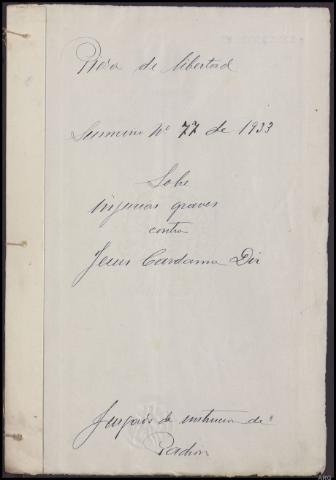 Pieza de libertad
Sumario Nº 77 de 1933
Sobre
injurias graves
contra
Jesus Cardama Dis
Juzgado de instruccion de
Padron